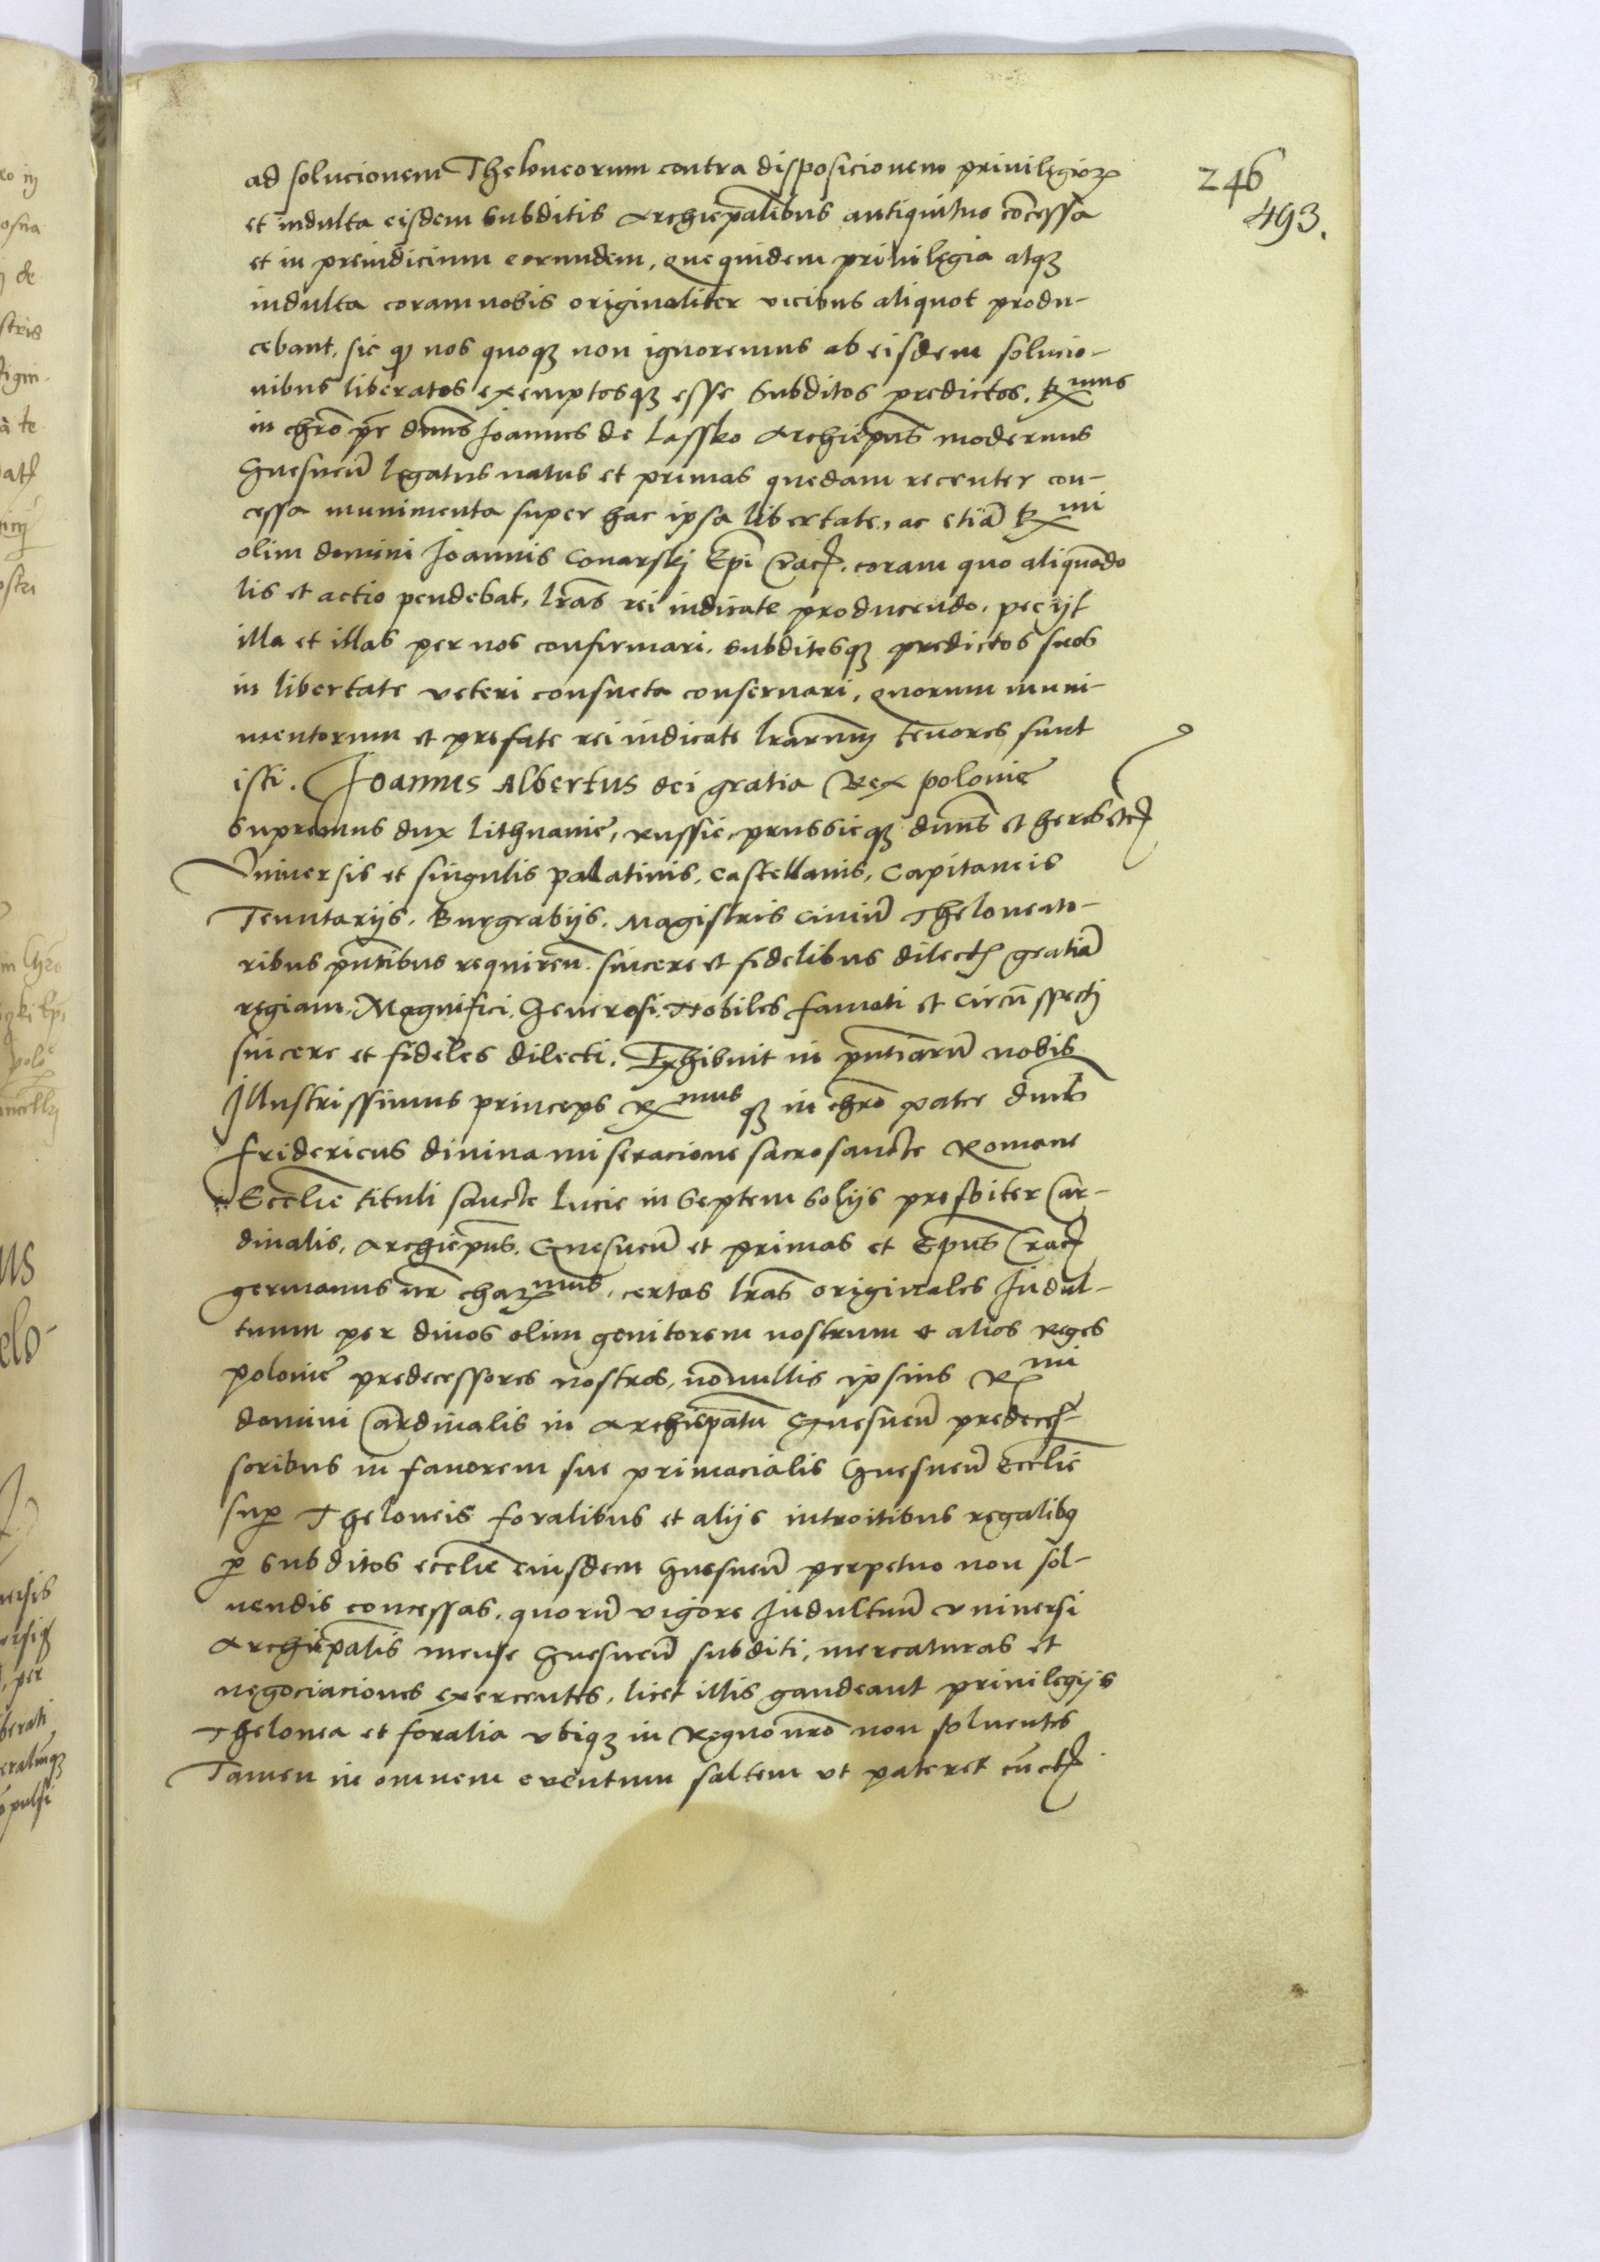 246
493.
ad solucionem Theloneorum contra disposicionem priuilegior̃
et indulta eisdem subditis Archiep̃alibus antiquitus cõcessa
et in preiudicium eorundem, que quidem priuilegia atqꝫ
indulta coram nobis originaliter vicibus aliquot produ-
cebant, sic qꝫ nos quoqꝫ non ignoremus ab eisdem solucio-
nibus liberatos exemptosqꝫ esse Subditos predictos. Rx̃mus
in chrõ pr̃ dñus Joannes de Lassko Archiep̃us modernus
Gnesneñ legatus natus et primas quedam recenter con-
cessa munimenta super hac ipsa libertate, ac etiã Rx̃mi
olim domini Joannis Conarskj Ep̃i Crac̃. coram quo aliquãdo
lis et actio pendebat, lr̃as rei iudicate producendo, pecijt
illa et illas per nos confirmari, subditosqꝫ predictos suos
in libertate veteri consueta conseruari, quorum muni-
mentorum et prefate rei iudicate lr̃arum tenores sunt
isti. Joannes Albertus dei gratia Rex polonie
Supremus dux Lithuanie, Russie, prussieqꝫ dñus et heres etc̃
Vniuersis et singulis palatinis, Castellanis, Capitaneis
Tenutarijs, Burgrabijs, Magistris Ciuiũ Theloneato-
ribus pñtibus requireñ. sincere et fidelibus dilect̃ gratiã
regiam. Magnifici, Generosi, Nobiles famati et Circũspecti
sincere et fideles dilecti. Exhibuit in pñtiarũ nobis
Illustrissimus princeps Rx̃musqꝫ in chrõ pater dñus
Fridericus diuina miseracione sacrosancte Romane
Eccl̃ie tituli sancte Lucie in Septem Solijs presbiter Car-
dinalis, Archiep̃us Gnesneñ et primas et Ep̃us Crac̃
germanus nr̃ char̃mus, certas lr̃as originales Indul-
tuum per diuos olim genitorem nostrum et alios reges
polonie predecessores nostros, nõnullis ipsius Rx̃mi
domini Cardinalis in Archiep̃atu Gnesneñ predeces-
soribus in fauorem sue primacialis Gnesneñ Eccl̃ie
sup̃ Theloneis foralibus et alijs introitibus regalibꝫ
p̃ subditos eccl̃ie eiusdem Gnesneñ perpetuo non sol-
uendis concessas, quorũ vigore Indultuũ vniuersi
Archiep̃alis mense Gnesneñ subditi, mercaturas et
negociaciones exercentes, licet illis gaudeant priuilegijs
Thelonea et foralia vbiqꝫ in Regno nr̃o non soluentes
Tamen in omnem euentum saltem vt pateret cũct̃